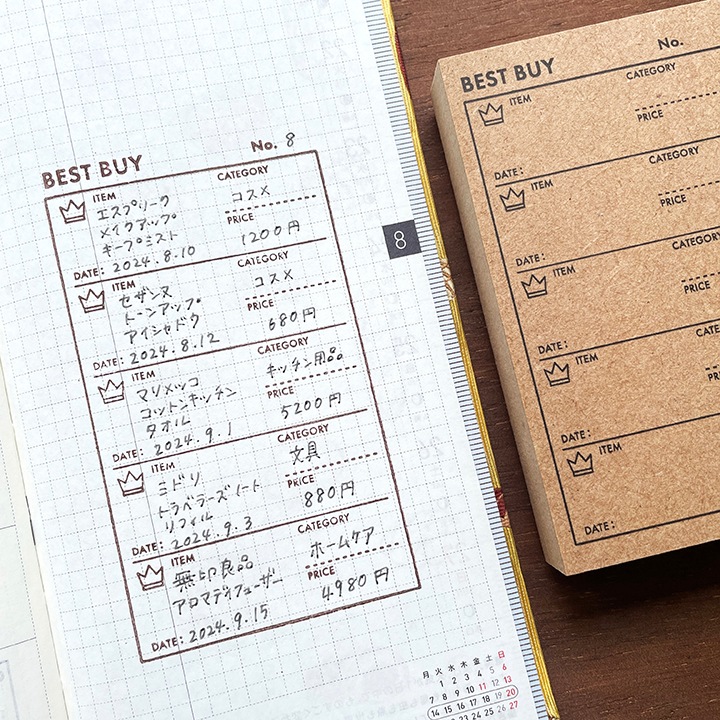 BEST BUY No. 8
ITEM CATEGORY
エスプリーク コスメ
メイクアップ PRICE
キープミスト 1200円
DATE: 2024.8.10
ITEM CATEGORY
セザンヌ コスメ
トーンアップ PRICE
アイシャドウ 680円
DATE: 2024.8.12
ITEM CATEGORY
マリメッコ キッチン用品
コットンキッチン PRICE
タオル 5200円
DATE: 2024.9.1
ITEM CATEGORY
ミドリ 文具
トラベラーズノート PRICE
リフィル 880円
DATE: 2024.9.3
ITEM CATEGORY
無印良品 ホームケア
アロマディフューザー PRICE
4980円
DATE: 2024.9.15
8
月 火 水 木 金 土 日
1 2 3 4 5 6
7 8 9 10 11 12 13
14 15 16 17 18 19 20
23 24 25 26 27
BEST BUY No.
ITEM CATEGORY
PRICE
DATE:
ITEM CATEGORY
PRICE
DATE:
ITEM CATEGORY
PRICE
DATE:
ITEM
DATE:
ITEM
DATE: